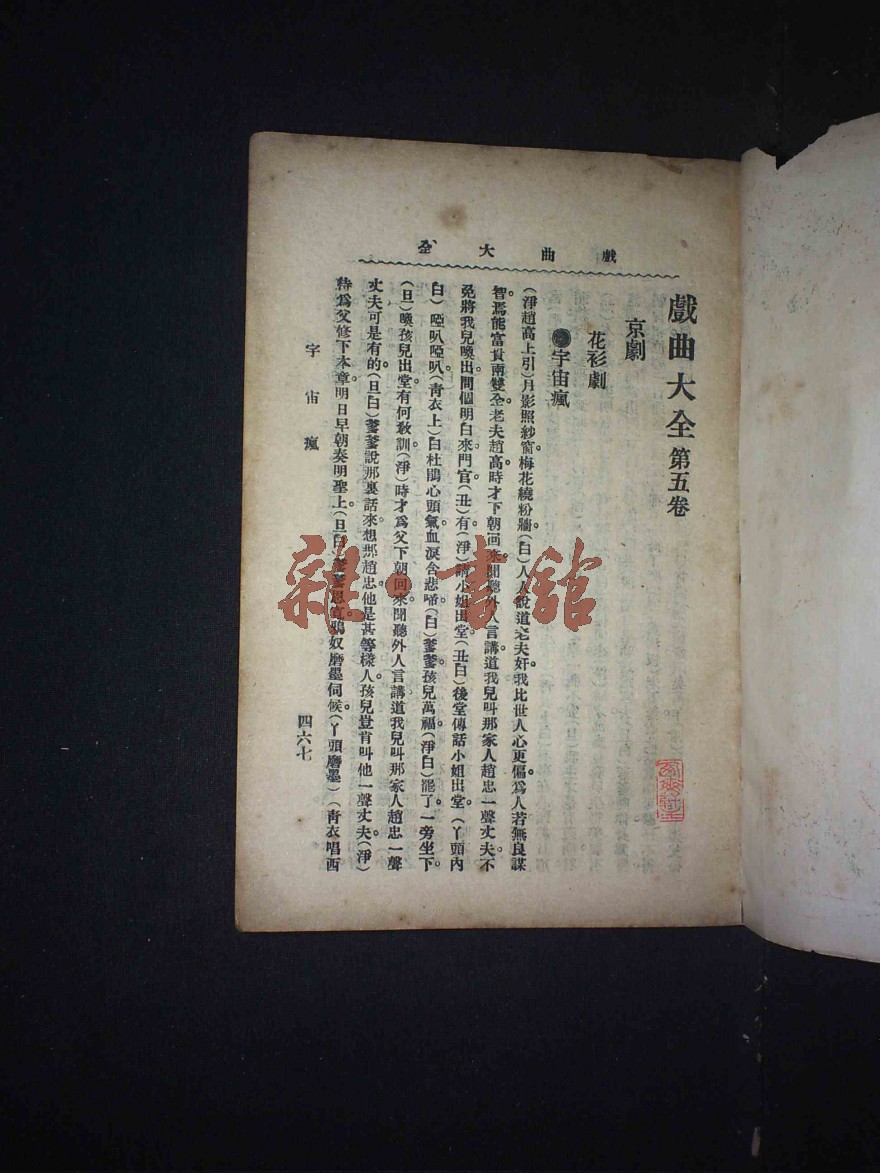 戲曲大全
戲曲大全第五卷
京劇
花衫劇
●宇宙瘋
(淨趙高上引)月影照紗窗梅花繞粉牆(白)人人說道老夫奸。我比世人心更偏。爲人若無良謀
智。焉能富貴兩雙全。老夫趙高時才下朝回來。聞聽外人言講道我兒叫那家人趙忠一聲丈夫不
免將我兒喚出。問個明白來門官(丑)有(淨)請小姐出堂(丑白)後堂傳話小姐出堂。(丫頭內
白)啞叭啞叭(靑衣上)白杜鵑心頭氣。血淚含悲啼(白)爹爹孩兒萬福(淨白)罷了。一旁坐下。
(旦)喚孩兒出堂有何敎訓(淨)時才爲父下朝回來聞聽外人言講道我兒叫那家人趙忠一聲
丈夫可是有的(旦白)爹爹說那裏話來想那趙忠。他是甚等樣人。孩兒豈肯叫他一聲丈夫(淨)
待爲父修下本章。明日早朝奏明聖上。(旦白)爹爹恩寬鴉奴磨墨伺候。(丫頭磨墨)(靑衣唱西
宇宙瘋
四六七
雜·書館